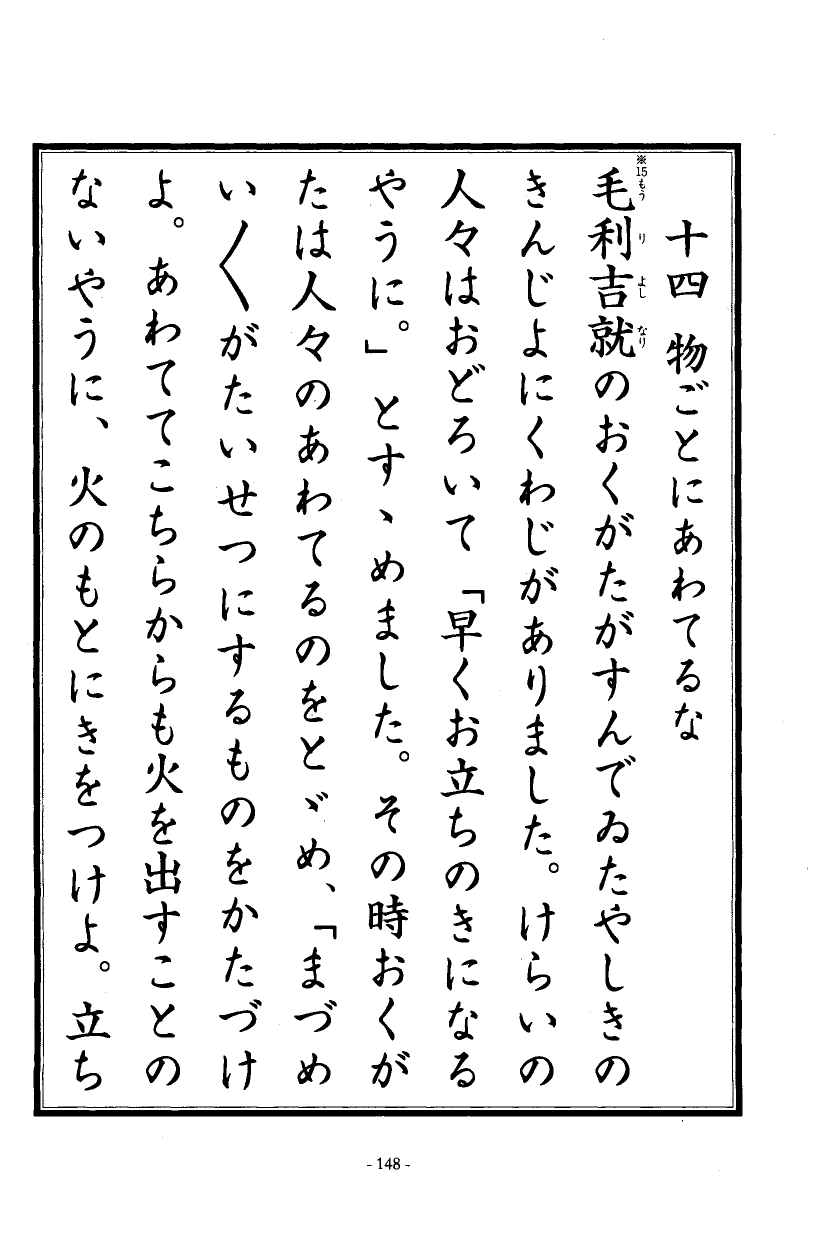 十四 物ごとにあわてるな
※15もう り よし なり
毛利吉就のおくがたがすんでゐたやしきの
きんじよにくわじがありました。けらいの
人々はおどろいて「早くお立ちのきになる
やうに。」とすゝめました。その時おくが
たは人々のあわてるのをとゞめ、「まづめ
い〳〵がたいせつにするものをかたづけ
よ。あわててこちらからも火を出すことの
ないやうに、火のもとにきをつけよ。立ち
- 148 -